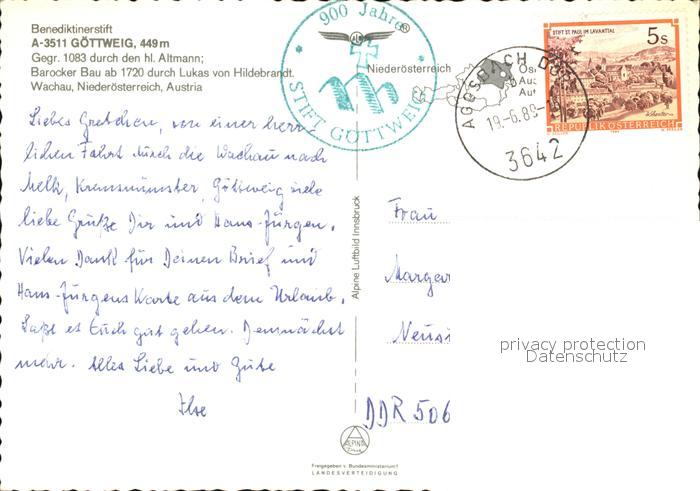 Benediktinerstift
A-3511 GÖTTWEIG, 449 m
Gegr. 1083 durch den hl. Altmann;
Barocker Bau ab 1720 durch Lukas von Hildebrandt.
Wachau, Niederösterreich, Austria
900 Jahre
STIFT GÖTTWEIG
Niederösterreich
AGGSBACH DO
19.-6.89-
3642
STIFT ST. PAUL IM LAVANTTAL
5 s
REPUBLIK ÖSTERREICH
Liebes Gretchen, von einer herr-
lichen Fahrt durch die Wachau nach
Melk, Kremsmünster, Göttweig viele
liebe Grüße Dir und Hans-Jürgen.
Vielen Dank für Deinen Brief und
Hans-Jürgens Karte aus dem Urlaub.
Laßt es Euch gut gehen. Demnächst
mehr. Alles Liebe und Gute
Ilse
Alpine Luftbild Innsbruck
Frau
Margar
Neuss
DDR 506
privacy protection
Datenschutz
ALPINE
Freigegeben v. Bundesministerium f.
LANDESVERTEIDIGUNG